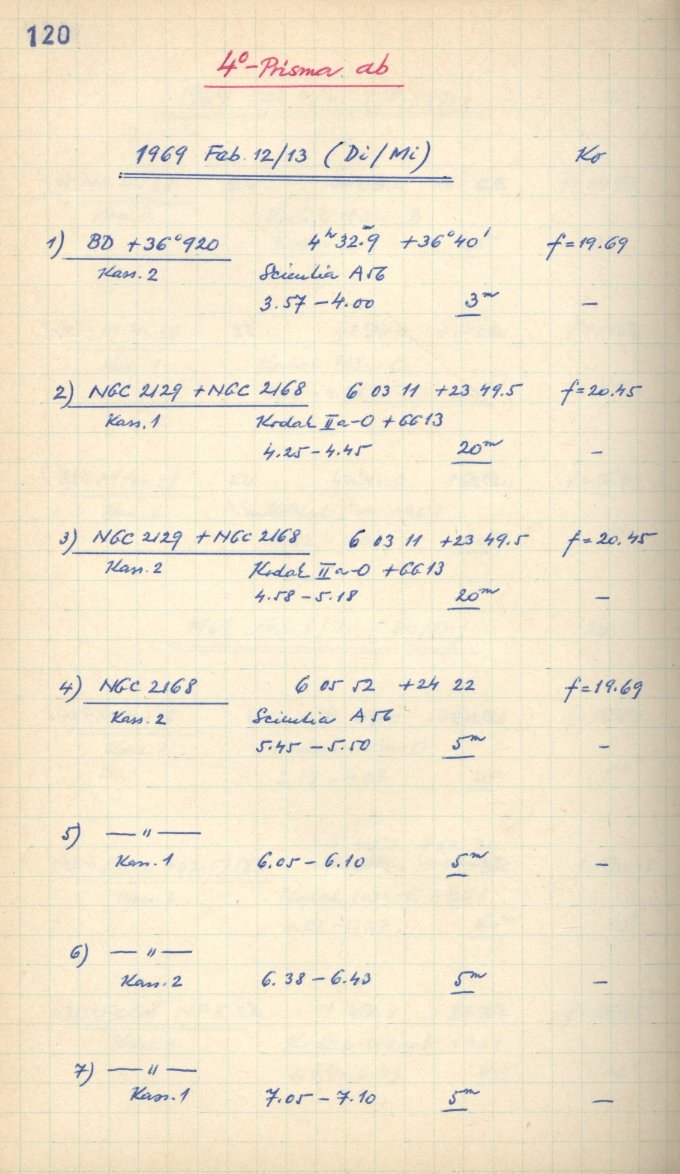 120
4°-Prisma ab
1969 Feb. 12/13 (Di/Mi) Ko
1) BD +36°920 4ʰ32.ᵐ9 +36°40' f=19.69
Kass. 2 Scientia A56
3.57 – 4.00 3ᵐ –
2) NGC 2129 + NGC 2168 6 03 11 +23 49.5 f=20.45
Kass. 1 Kodak IIa-O + GG13
4.25 – 4.45 20ᵐ –
3) NGC 2129 + NGC 2168 6 03 11 +23 49.5 f=20.45
Kass. 2 Kodak IIa-O + GG13
4.58 – 5.18 20ᵐ –
4) NGC 2168 6 05 52 +24 22 f=19.69
Kass. 2 Scientia A56
5.45 – 5.50 5ᵐ –
5) — " —
Kass. 1 6.05 – 6.10 5ᵐ –
6) — " —
Kass. 2 6.38 – 6.43 5ᵐ –
7) — " —
Kass. 1 7.05 – 7.10 5ᵐ –